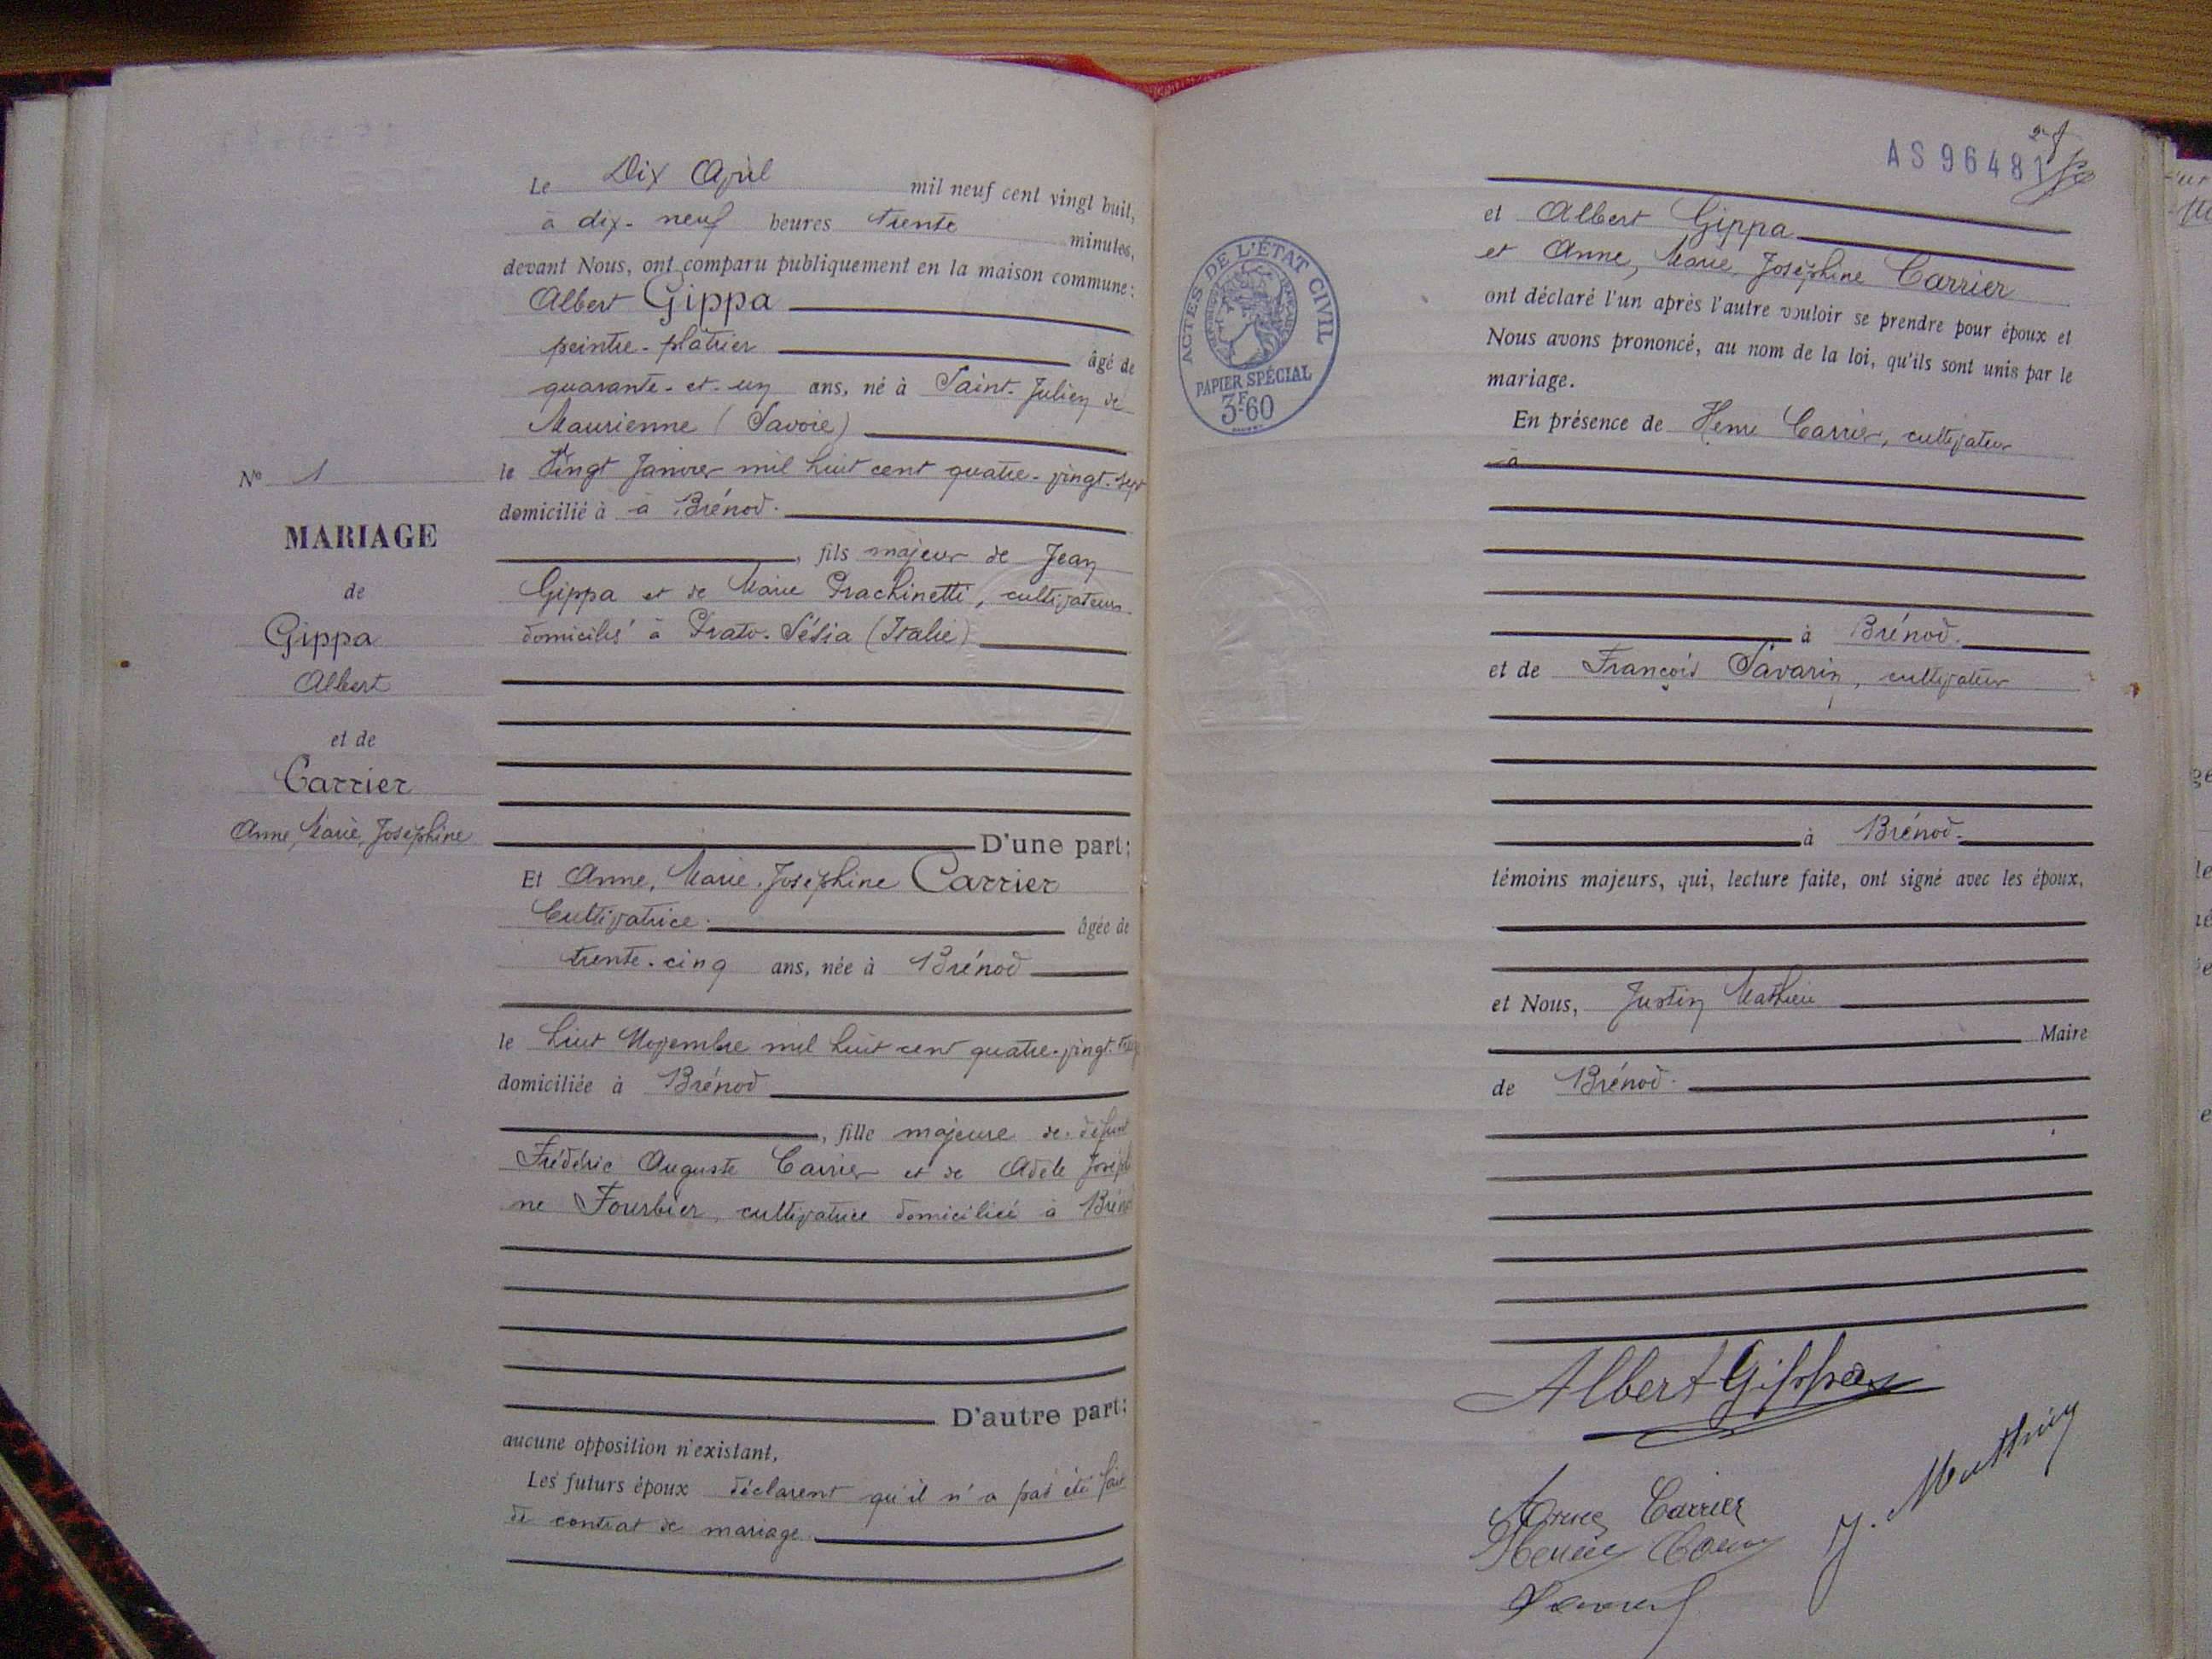 Le Dix Avril mil neuf cent vingt huit,
à dix-neuf heures trente minutes,
devant Nous, ont comparu publiquement en la maison commune :
Albert Gippa
peintre-plâtrier âgé de
quarante-et-un ans, né à Saint-Julien de
Maurienne (Savoie)
le Vingt Janvier mil huit cent quatre-vingt-sept
domicilié à à Brénod.
, fils majeur de Jean
Gippa et de Marie Prachinetti, cultivateurs
domiciliés à Prato-Sésia (Italie)
D'une part;
Et Anne, Marie, Joséphine Carrier
Cultivatrice. âgée de
trente-cinq ans, née à Brénod
le huit Novembre mil huit cent quatre-vingt-
domiciliée à Brénod
, fille majeure de défunt
Frédéric Auguste Carrier et de Adèle Joséphi
ne Fourbier, cultivatrice domiciliée à Brénod
D'autre part;
aucune opposition n'existant,
Les futurs époux déclarent qu'il n'a pas été fait
de contrat de mariage.
N° 1
MARIAGE
de
Gippa
Albert
et de
Carrier
Anne, Marie, Joséphine
AS 96481
et Albert Gippa
et Anne, Marie, Joséphine Carrier
ont déclaré l'un après l'autre vouloir se prendre pour époux et
Nous avons prononcé, au nom de la loi, qu'ils sont unis par le
mariage.
En présence de Henri Carrier, cultivateur
à
à Brénod.
et de François Savarin, cultivateur
à Brénod.
témoins majeurs, qui, lecture faite, ont signé avec les époux,
et Nous, Justin Mathieu
Maire
de Brénod.
ACTES DE L'ÉTAT CIVIL
PAPIER SPÉCIAL
3F60
Albert Gippa
Carrier
J. Mathieu